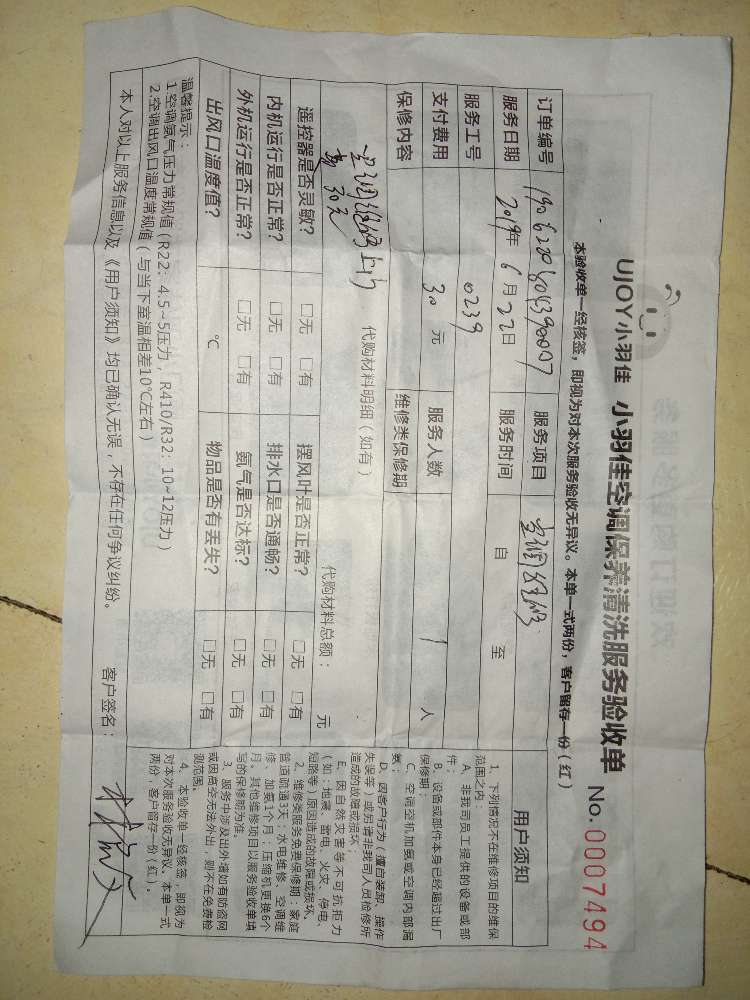 UJOY小羽佳 小羽佳空调保养清洗服务验收单 No. 0007494
本验收单一经核签，即视为对本次服务验收无异议。本单一式两份，客户留存一份（红）
订单编号 服务项目 空调维修
服务日期 2019年 6月22日 服务时间 自 至
服务工号 0239
支付费用 30 元 服务人数 1 人
保修内容 维修类保修期
代购材料明细（如有） 代购材料总额： 元
空调维修上门
费 30元
遥控器是否灵敏？ □无 □有 摆风叶是否正常？ □无 □有
内机运行是否正常？ □无 □有 排水口是否通畅？ □无 □有
外机运行是否正常？ □无 □有 氨气是否达标？ □无 □有
出风口温度值？ ℃ 物品是否有丢失？ □无 □有
温馨提示：
1.空调氨气压力常规值（R22：4.5~5压力，R410/R32：10~12压力）
2.空调出风口温度常规值（与当下室温相差10℃左右）
本人对以上服务信息以及《用户须知》均已确认无误，不存在任何争议纠纷。 客户签名：
用户须知
1、下列情况不在维修项目的维保
范围之内：
A、非我司员工提供的设备或部
件；
B、设备或部件本身已经超过出厂
保修期；
C、空调空机加氨或空调内部漏
氨；
D、因客户行为（擅自装卸、操作
失误等）或另请非我司人员检修所
造成的故障或损坏；
E、因自然灾害等不可抗拒力
（如：地震、雷电、火灾、停电、
短路等）原因造成的故障或损坏。
2、维修类服务免费保修期：家庭
管道疏通3天；水电维修、空调维
修、加氨1个月；压缩机更换6个
月。其他维修项目以服务验收单填
写的保修期为准。
3、服务中涉及出外墙如有防盗网
或因高空无法外出，则不在免费检
测范围。
4、本验收单一经核签，即视为
对本次服务验收无异议。本单一式
两份，客户留存一份（红）。